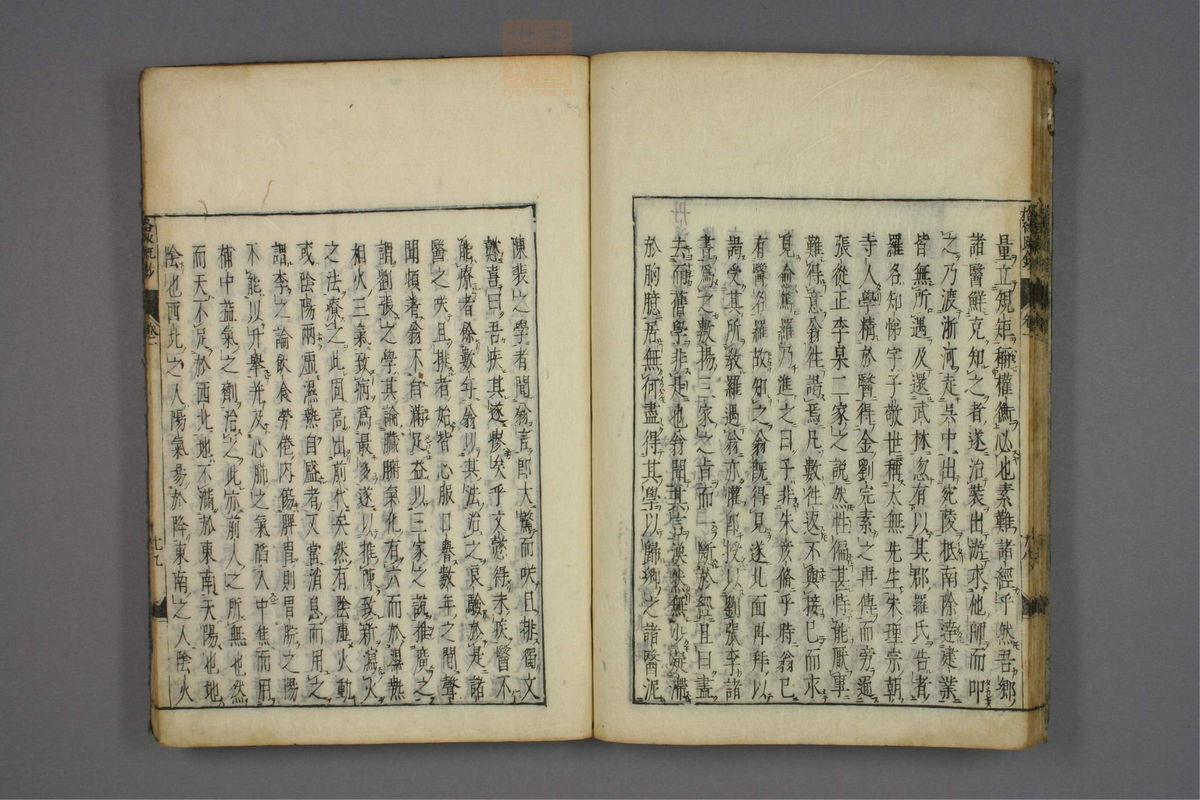 量立規矩稱權衡必也素難諸經乎然吾鄉
諸醫鮮克知之者遂治裝出游求他師而叩
之乃渡浙河走吳中出宛陵抵南徐達建業
皆無所遇及還武林忽有以其郡羅氏告者
羅名知悌字子敬世稱太無先生宋理宗朝
寺人學精於醫得金劉完素之再傳而旁通
張從正李杲二家之說然性偏甚恃能厭事
難得意翁往謁焉凡數往返不與接已而求
見愈篤羅乃進之曰子非朱彥脩乎時翁已
有醫名羅故知之翁旣得見遂北面再拜以
謁受其所敎羅遇翁亦懽即授以劉張李諸
書爲之敷揚三家之旨而一斷於經且曰盡
去而舊學非是也翁聞其言渙然無少凝滯
於胸臆居無何盡得其學以歸鄉之諸醫泥
陳裴之學者聞翁言即大驚而咲且排獨文
懿喜曰吾疾其遂瘳矣乎文懿得末疾醫不
能療者餘數年翁以其法治之良驗於是諸
醫之咲且排者始皆心服口譽數年之間聲
聞頓著翁不自滿足益以三家之說推廣之
謂劉張之學其論臟腑氣化有六而於濕熱
相火三氣致病爲最多遂以推陳致新瀉火
之法療之此固高出前代矣然有陰虛火動
或陰陽兩虛濕熱自盛者又當消息而用之
謂李之論飲食勞倦內傷脾胃則胃脘之陽
不能以升舉并及心肺之氣陷入中焦而用
補中益氣之劑治之此亦前人之所無也然
而天不足於西北地不滿於東南天陽也地
陰也西北之人陽氣易於降東南之人陰火
卷一
七九